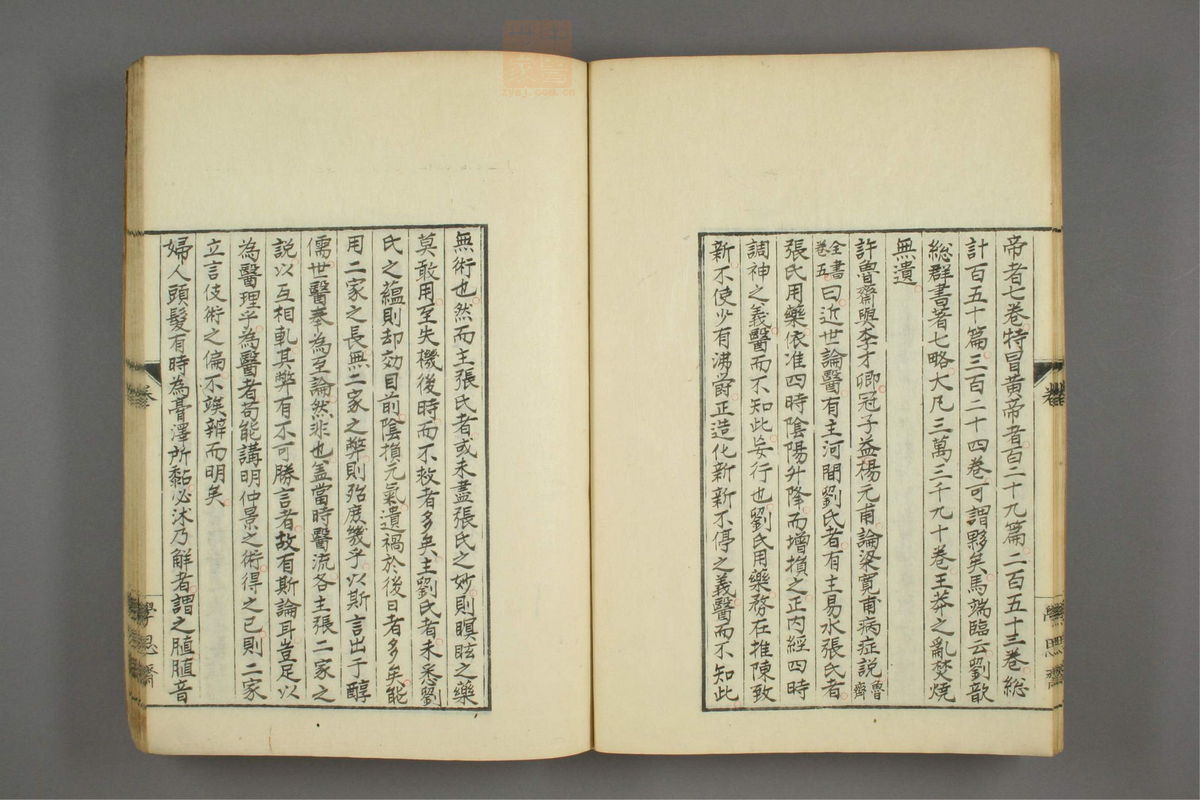 帝者七卷特冒黃帝者百二十九篇二百五十三卷総
計百五十篇三百二十四卷可謂夥矣馬端臨云劉歆
総群書著七略大凡三萬三千九十卷王莽之亂焚燒
無遺
許魯齋與李才卿冠子益楊元甫論梁寬甫病症説魯齋
全書卷五曰近世論醫有主河間劉氏者有主易水張氏者
張氏用藥依准四時陰陽升降而增損之正內經四時
調神之義醫而不知此妄行也劉氏用藥務在推陳致
新不使少有沸鬱正造化新新不停之義醫而不知此
無術也然而主張氏者或未盡張氏之妙則瞑眩之藥
莫敢用至失機後時而不救者多矣主劉氏者未悉劉
氏之蘊則却効目前陰損元氣遺禍於後日者多矣能
用二家之長無二家之弊則殆庶幾乎以斯言出于醇
儒世醫奉為至論然非也盖當時醫流各主張二家之
説以互相軋其弊有不可勝言者故有斯論耳豈足以
為醫理乎為醫者苟能講明仲景之術得之已則二家
立言伎術之偏不竢辨而明矣
婦人頭髮有時為膏澤所黏必沐乃解者謂之脂脂音
卷
學思齋
zysj.com.cn